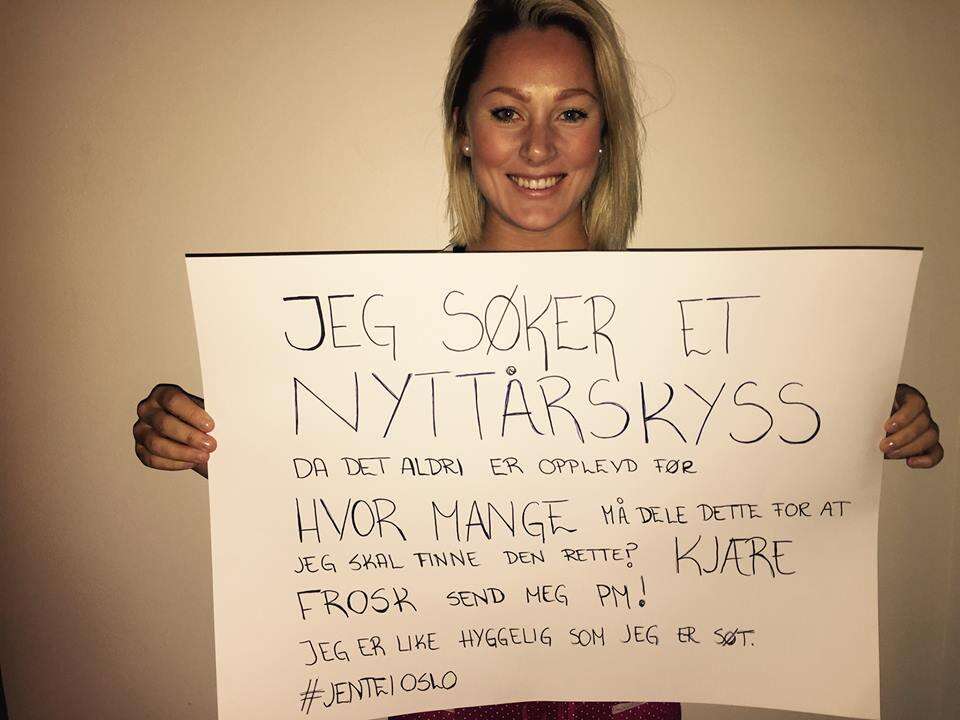 JEG SØKER ET
NYTTÅRSKYSS
DA DET ALDRI ER OPPLEVD FØR
HVOR MANGE MÅ DELE DETTE FOR AT
JEG SKAL FINNE DEN RETTE? KJÆRE
FROSK SEND MEG PM!
JEG ER LIKE HYGGELIG SOM JEG ER SØT.
#JENTEIOSLO